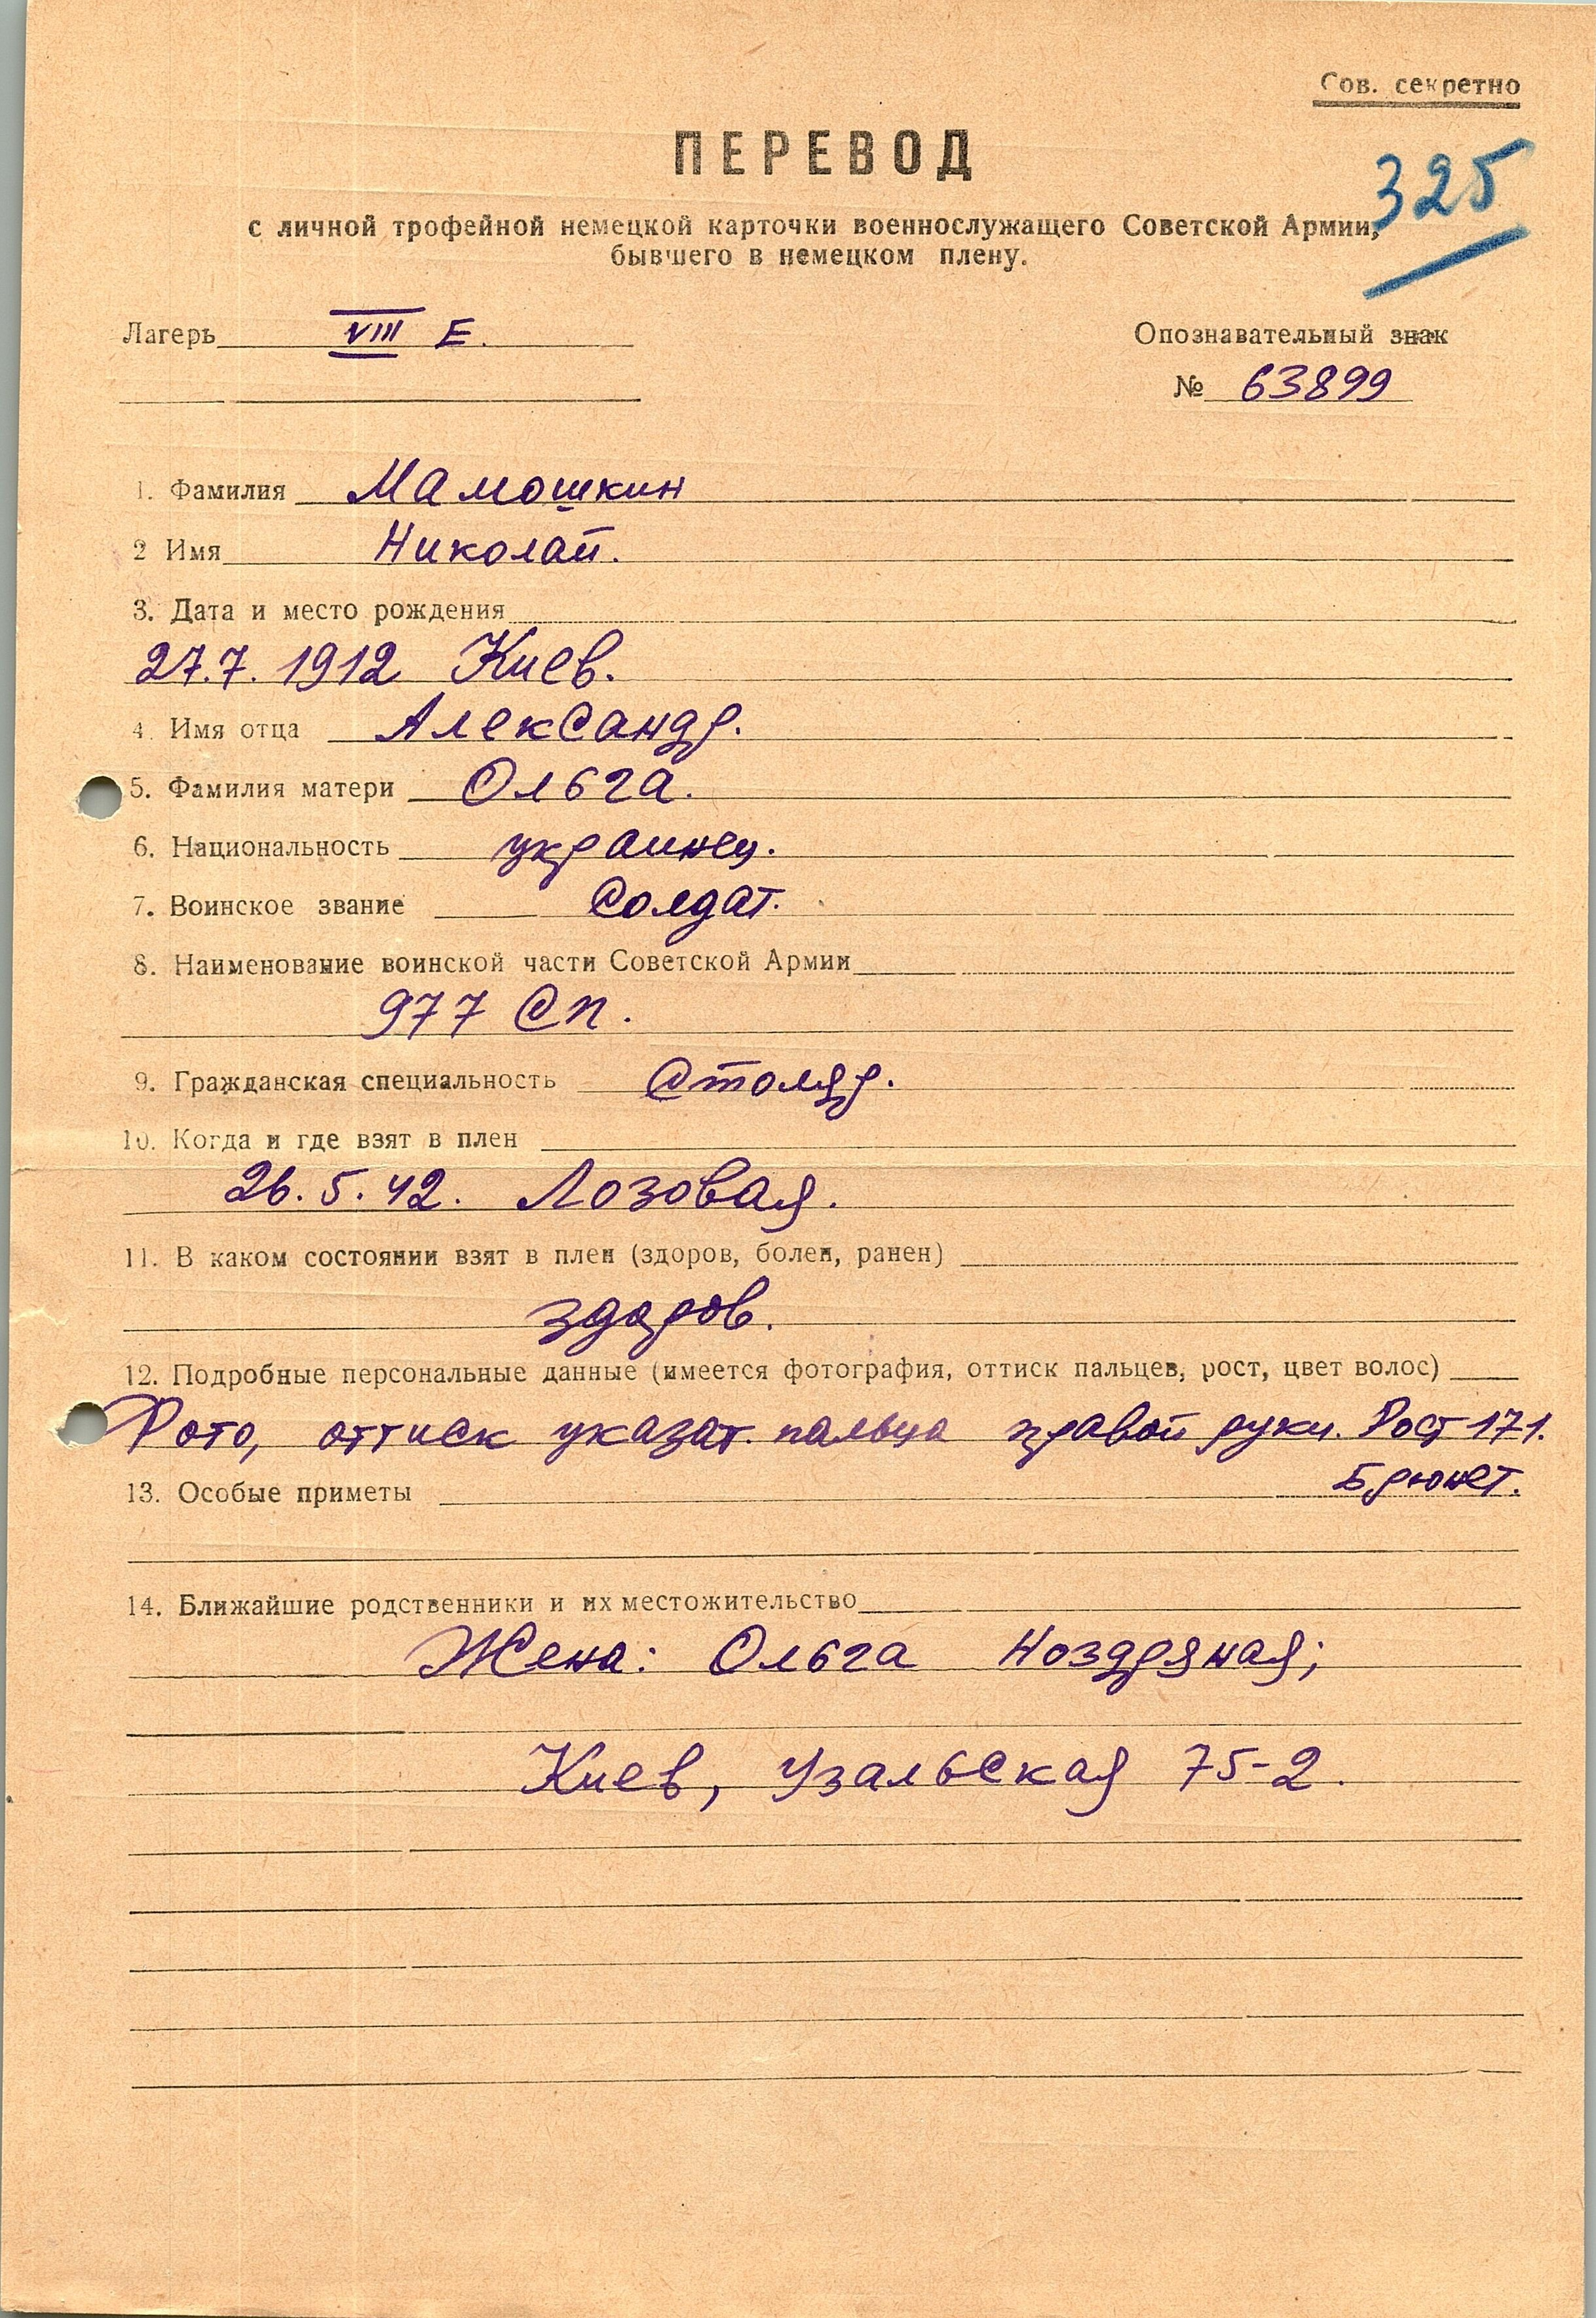 Сов. секретно
ПЕРЕВОД
325
с личной трофейной немецкой карточки военнослужащего Советской Армии,
бывшего в немецком плену.
Лагерь VIII Е. Опознавательный знак
№ 63899
1. Фамилия Мамошкин
2 Имя Николай.
3. Дата и место рождения
27.7. 1912 Киев.
4. Имя отца Александр.
5. Фамилия матери Ольга.
6. Национальность украинец.
7. Воинское звание Солдат.
8. Наименование воинской части Советской Армии
977 Сп.
9. Гражданская специальность Столяр.
10. Когда и где взят в плен
26.5.42. Лозовая.
11. В каком состоянии взят в плен (здоров, болен, ранен)
здоров.
12. Подробные персональные данные (имеется фотография, оттиск пальцев, рост, цвет волос)
Фото, оттиск указат. пальца правой руки. Рост 171.
Брюнет.
13. Особые приметы
14. Ближайшие родственники и их местожительство
Жена: Ольга Ноздряная;
Киев, Узальская 75-2.